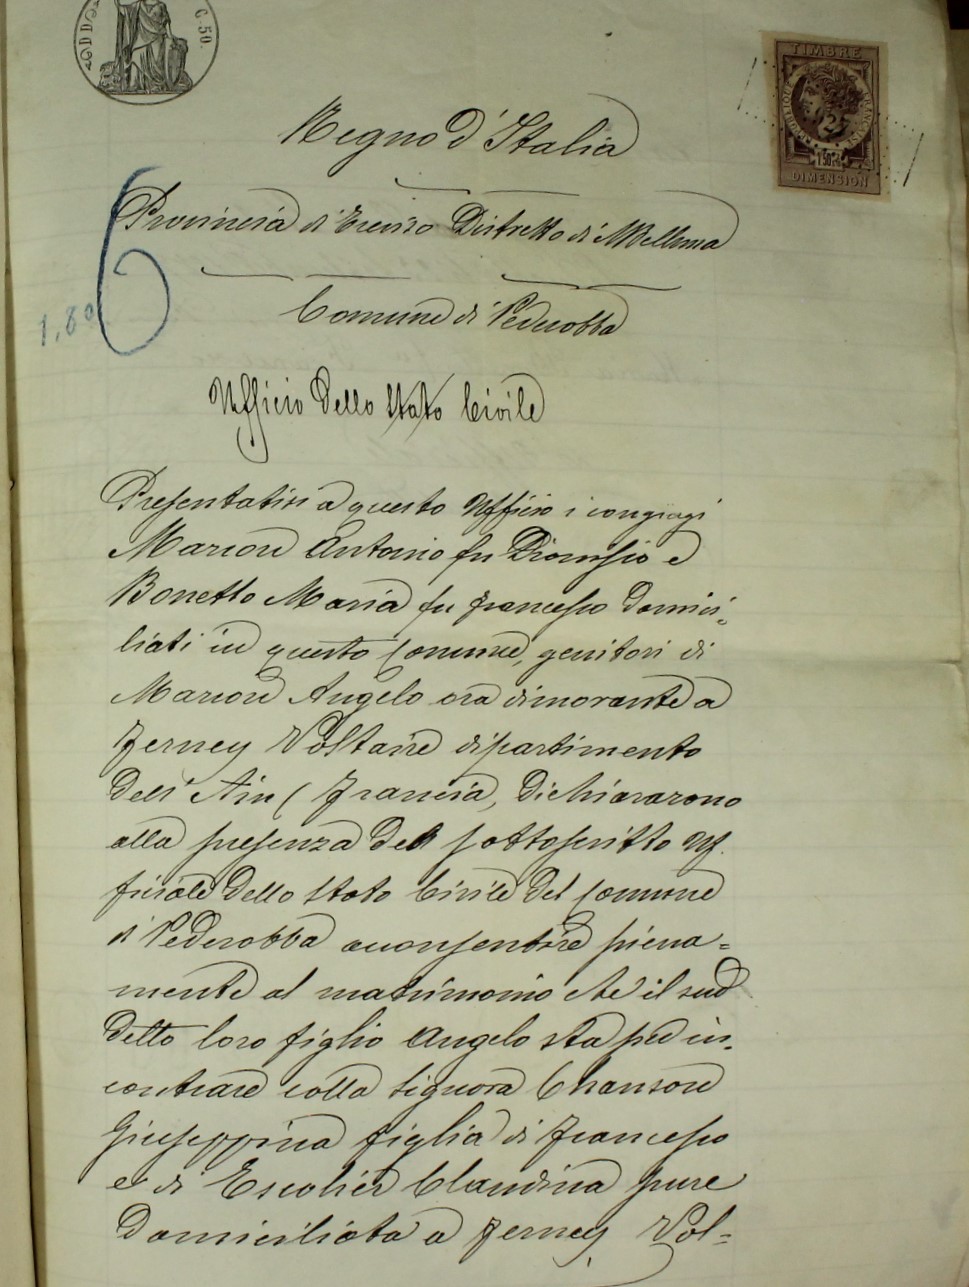 C. 50.
TIMBRE
RÉPUBLIQUE FRANÇAISE
25
1 50c
DIMENSION
Regno d'Italia
Provincia di Treviso Distretto di MBelluna
Comune di Pederobba
6
1,80
Ufficio dello Stato Civile
Presentatisi a questo Ufficio i congiugi
Marion Antonio fu Dionisio e
Bonetto Maria fu Francesco domici-
liati in questo Comune, genitori di
Marion Angelo ora dimorante a
Ferney Voltaire dipartimento
dell' Ain (Francia, dichiararono
alla presenza del sottoscritto Uf.
ficiale dello Stato Civile del Comune
di Pederobba acconsentire piena=
mente al matrimonio che il sud
detto loro figlio Angelo sta per in-
contrare colla signora Chanson
Giuseppina figlia di Francesco
e di Escolier Claudina pure
domiciliata a Ferney Vol=